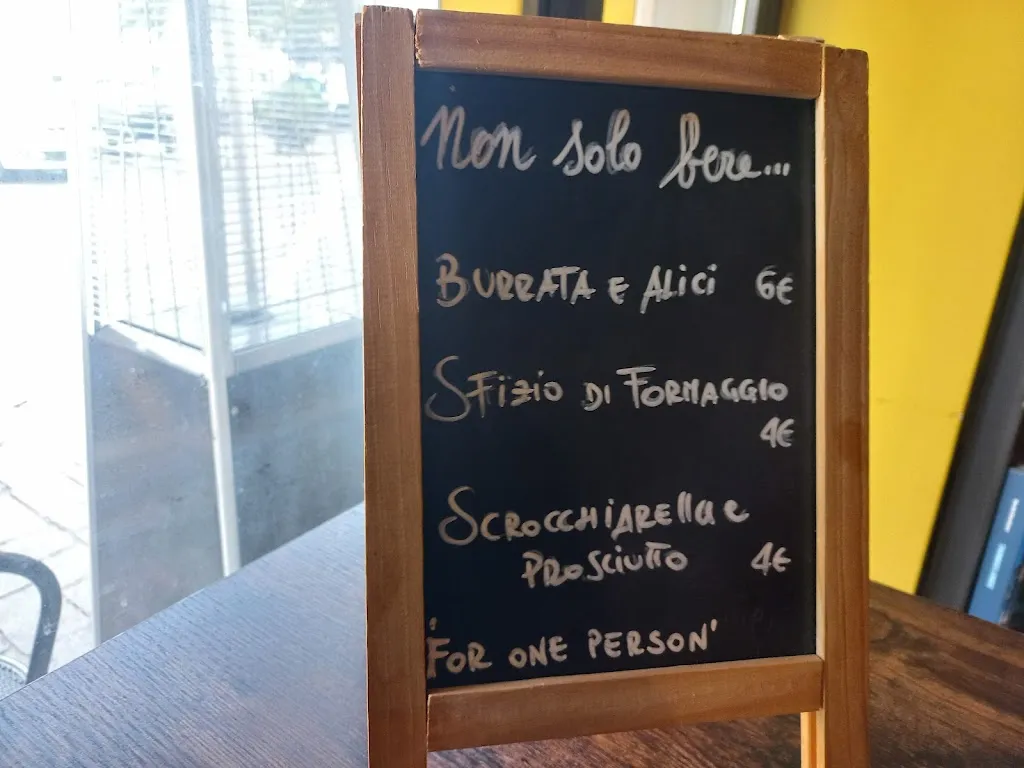 Non solo bere...
BURRATA E ALICI 6€
SFIZIO DI FORMAGGIO
4€
SCROCCHIARELLA e
PROSCIUTTO 4€
"FOR ONE PERSON"